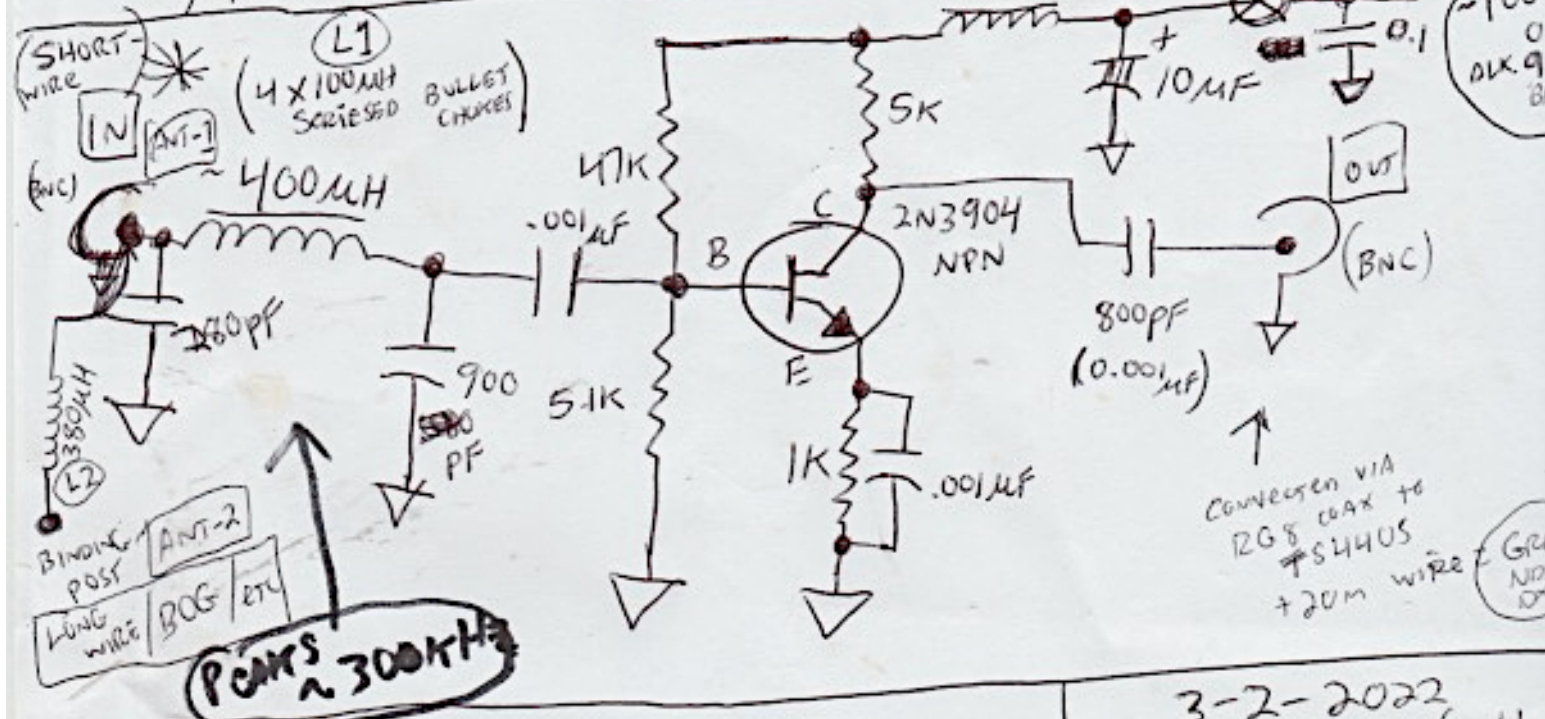 (SHORT-
WIRE
IN
ANT-1
(BNC)
L1
(4 X 100µH
SERIESED BULLET
CHOKES)
~ 400µH
180pF
380µH
L2
BINDING
POST
ANT-2
LONG
WIRE
BOG
ETC
PEAKS
~ 300KHz
900
PF
.001µF
47K
5.1K
B
C
E
2N3904
NPN
5K
1K
.001µF
+
10µF
0.1
800pF
(0.001µF)
OUT
(BNC)
CONNECTED VIA
RG8 COAX to
+ 20m WIRE
3-2-2022